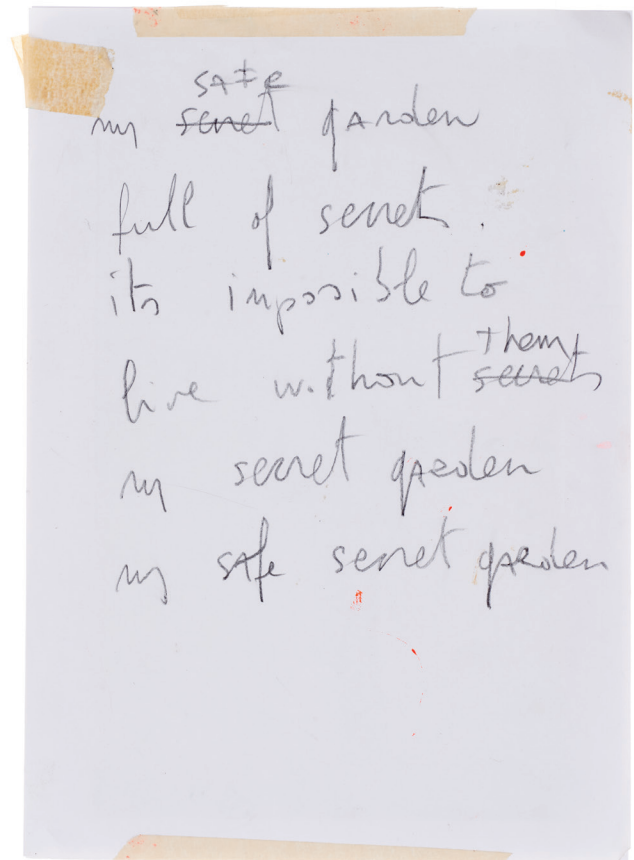 safe
my secret garden
full of secret.
its impossible to
live without secrets them
my secret garden
my safe secret garden